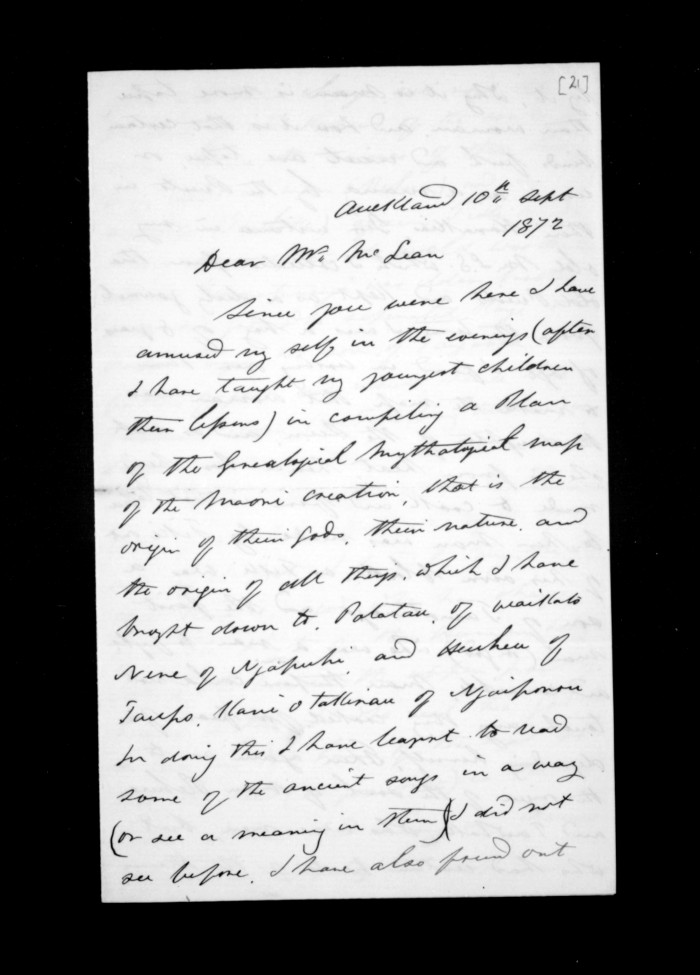 [21]
Auckland 10th Sept
1872
Dear Mr McLean
Since you were here I have
amused my self in the evenings (after
I have taught my youngest children
their lessons) in compiling a Plan
of the Genealogical Mythological map
of the Maori creation, that is the
origin of their Gods, their nature, and
the origin of all things. which I have
brought down to, Potatau, of Waikato
Nene of Ngapuhi, and Heuheu of
Taupo. Kani o Takirau of Ngatiporou
In doing this I have learnt to read
some of the ancient songs in a way
(or see a meaning in them) I did not
see before. I have also found out